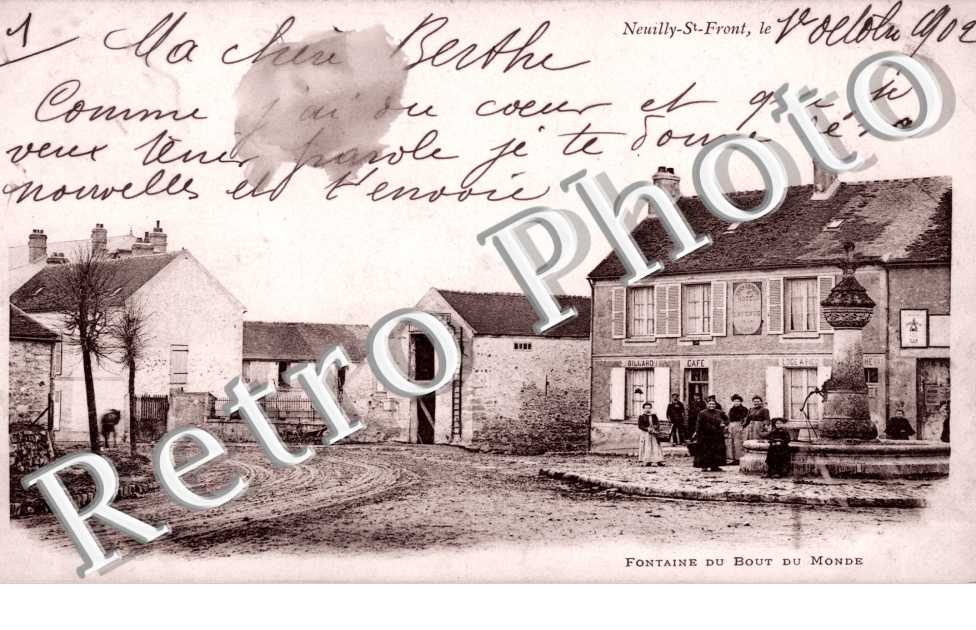 1
Neuilly-St-Front, le 1er octobre 1902
Ma chère Berthe
Comme j'ai du cœur et que si
veux tenir parole je te donne
nouvelles et t'envoie
Retro Photo
BILLARD CAFÉ
FONTAINE DU BOUT DU MONDE